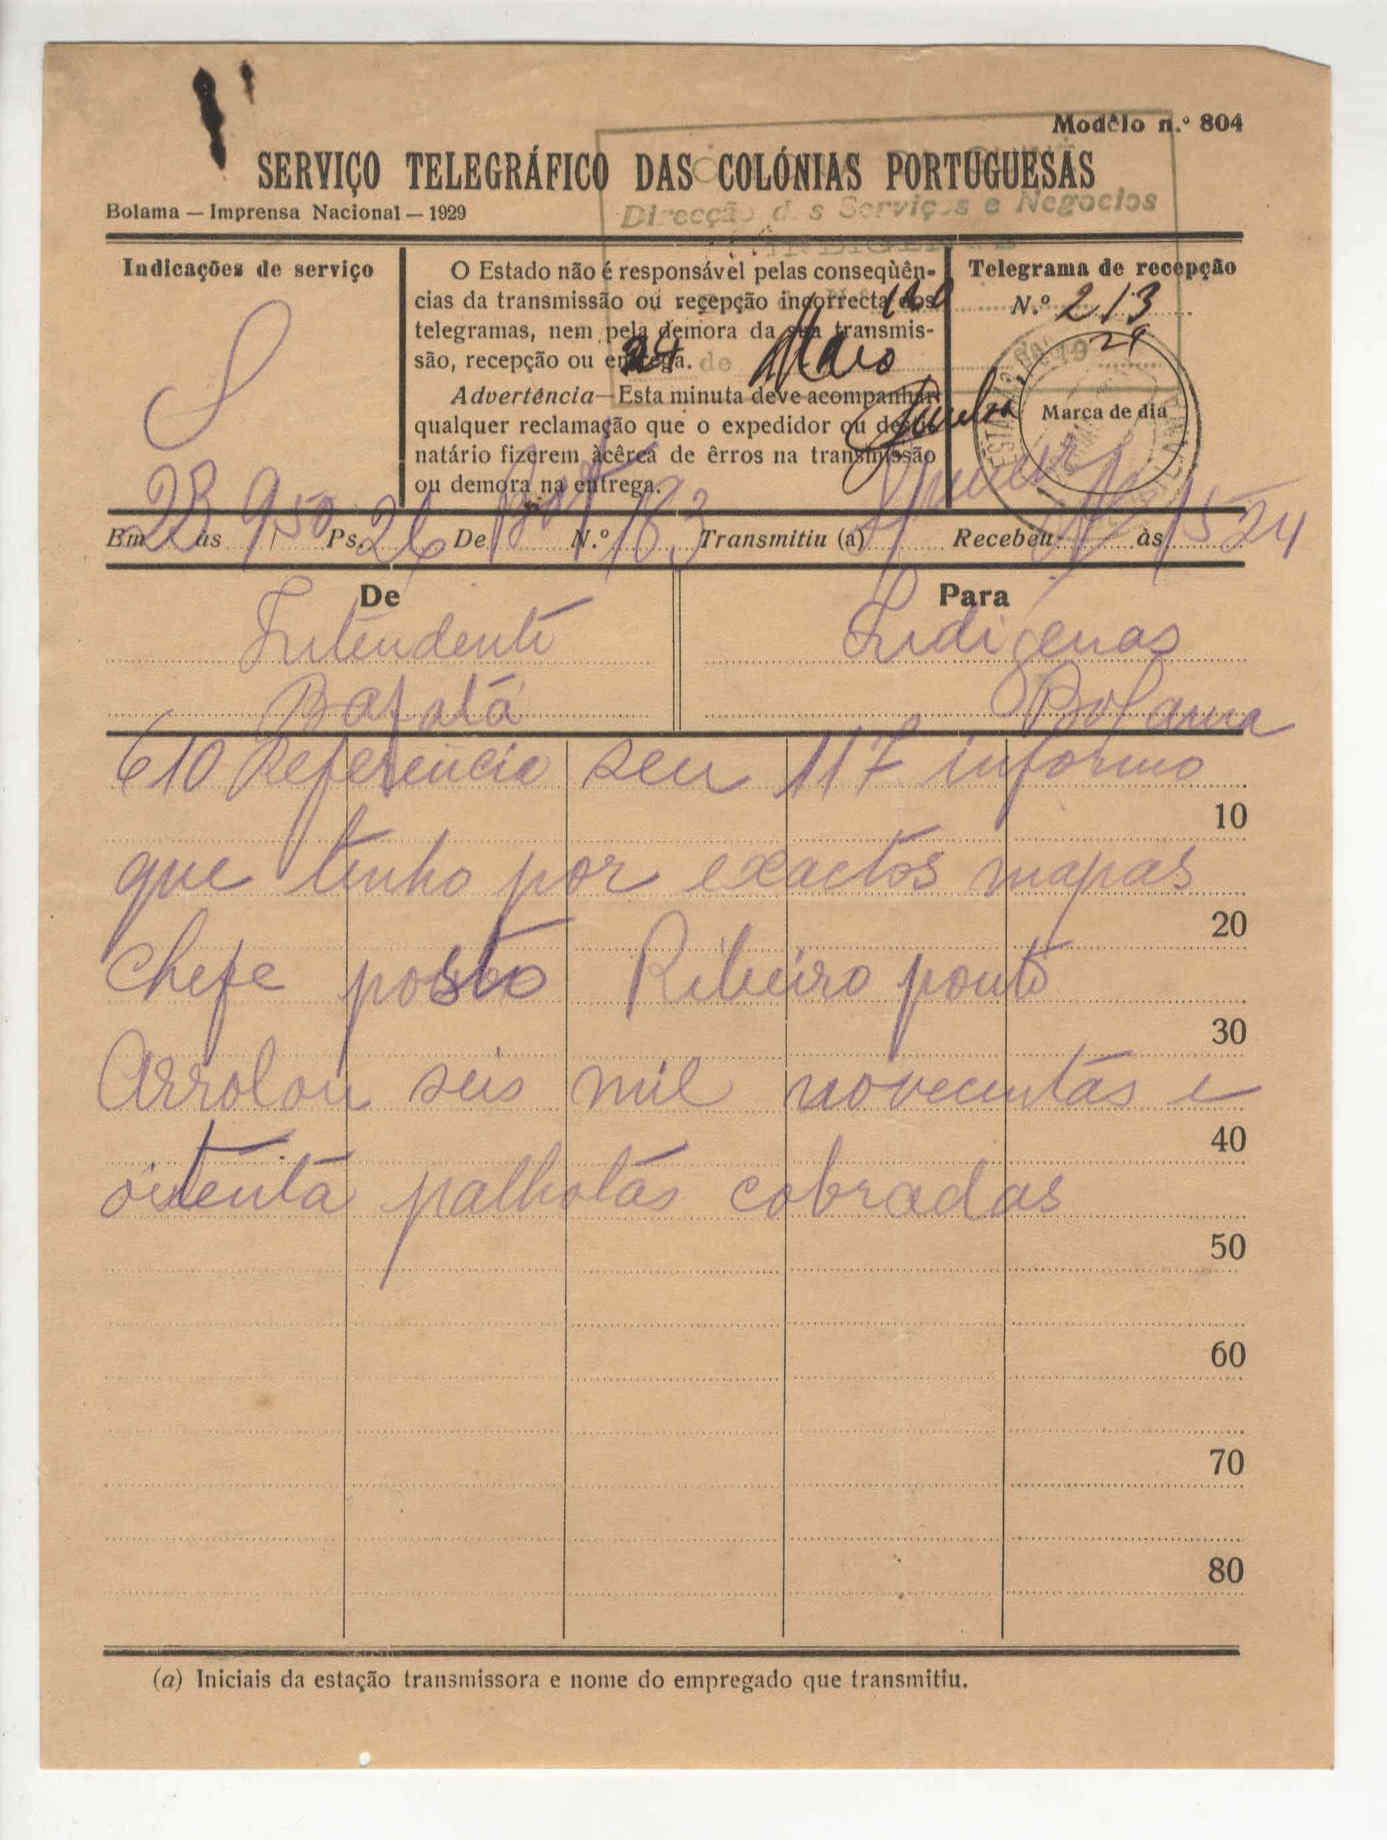 Modêlo n.º 804
SERVIÇO TELEGRÁFICO DAS COLÓNIAS PORTUGUESAS
Bolama — Imprensa Nacional — 1929
Direcção dos Serviços e Negocios
Indicações de serviço
S
O Estado não é responsável pelas conseqùên-
cias da transmissão ou recepção incorrecta dos
telegramas, nem pela demora da sua transmis-
são, recepção ou entrega. de
24 Maio
Advertência—Esta minuta deve acompanhar
qualquer reclamação que o expedidor ou desti-
natário fizerem àcêrca de êrros na transmissão
ou demora na entrega.
Telegrama de recepção
N.º 213
24
Marca de dia
Em 23 às 950 Ps. 26 De Baf N.º 183 Transmitiu (a) Recebeu às 15 24
De
Intendente
Bafatá
Para
Indígenas
Bolama
610 Referencia seu 117 informo
10
que tenho por exactos mapas
20
chefe posto Ribeiro ponto
30
Arrolou seis mil novecentas e
40
oitenta palhotas cobradas
50
60
70
80
(a) Iniciais da estação transmissora e nome do empregado que transmitiu.